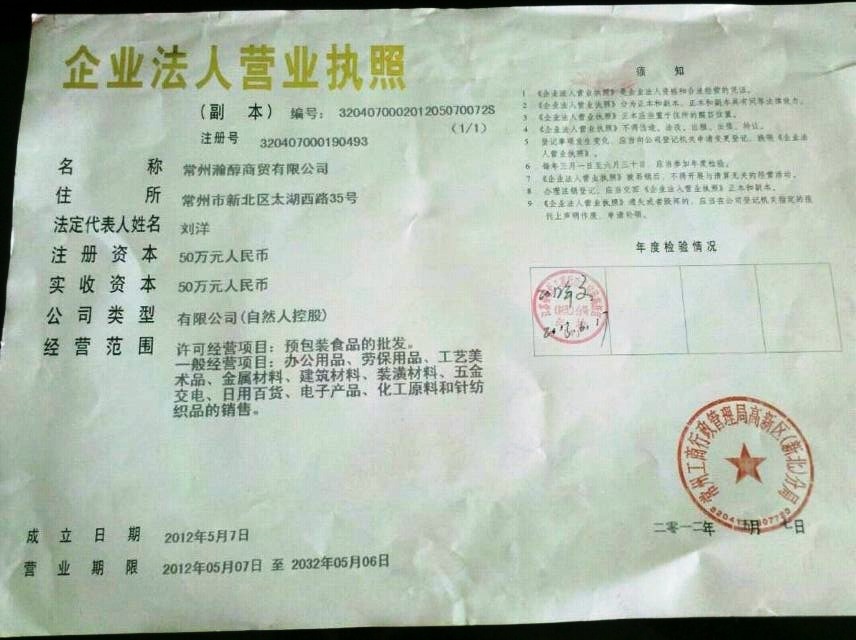 企业法人营业执照
（副 本） 编号： 320407000201205070072S
（1/1）
注册号 320407000190493
名 称 常州瀚醇商贸有限公司
住 所 常州市新北区太湖西路35号
法定代表人姓名 刘洋
注 册 资 本 50万元人民币
实 收 资 本 50万元人民币
公 司 类 型 有限公司(自然人控股)
经 营 范 围 许可经营项目：预包装食品的批发。
一般经营项目：办公用品、劳保用品、工艺美
术品、金属材料、建筑材料、装潢材料、五金
交电、日用百货、电子产品、化工原料和针纺
织品的销售。
成 立 日 期 2012年5月7日
营 业 期 限 2012年05月07日 至 2032年05月06日
须 知
1 《企业法人营业执照》是企业法人资格和合法经营的凭证。
2 《企业法人营业执照》分为正本和副本，正本和副本具有同等法律效力。
3 《企业法人营业执照》正本应当置于住所的醒目位置。
4 《企业法人营业执照》不得伪造、涂改、出租、出借、转让。
5 登记事项发生变化，应当向公司登记机关申请变更登记，换领《企业法
人营业执照》。
6 每年三月一日至六月三十日，应当参加年度检验。
7 《企业法人营业执照》被吊销后，不得开展与清算无关的经营活动。
8 办理注销登记，应当交回《企业法人营业执照》正本和副本。
9 《企业法人营业执照》遗失或者毁坏的，应当在公司登记机关指定的报
刊上声明作废，申请补领。
年度检验情况
常州工商行政管理局高新区(新北)分局
二零一二年 五月 七日